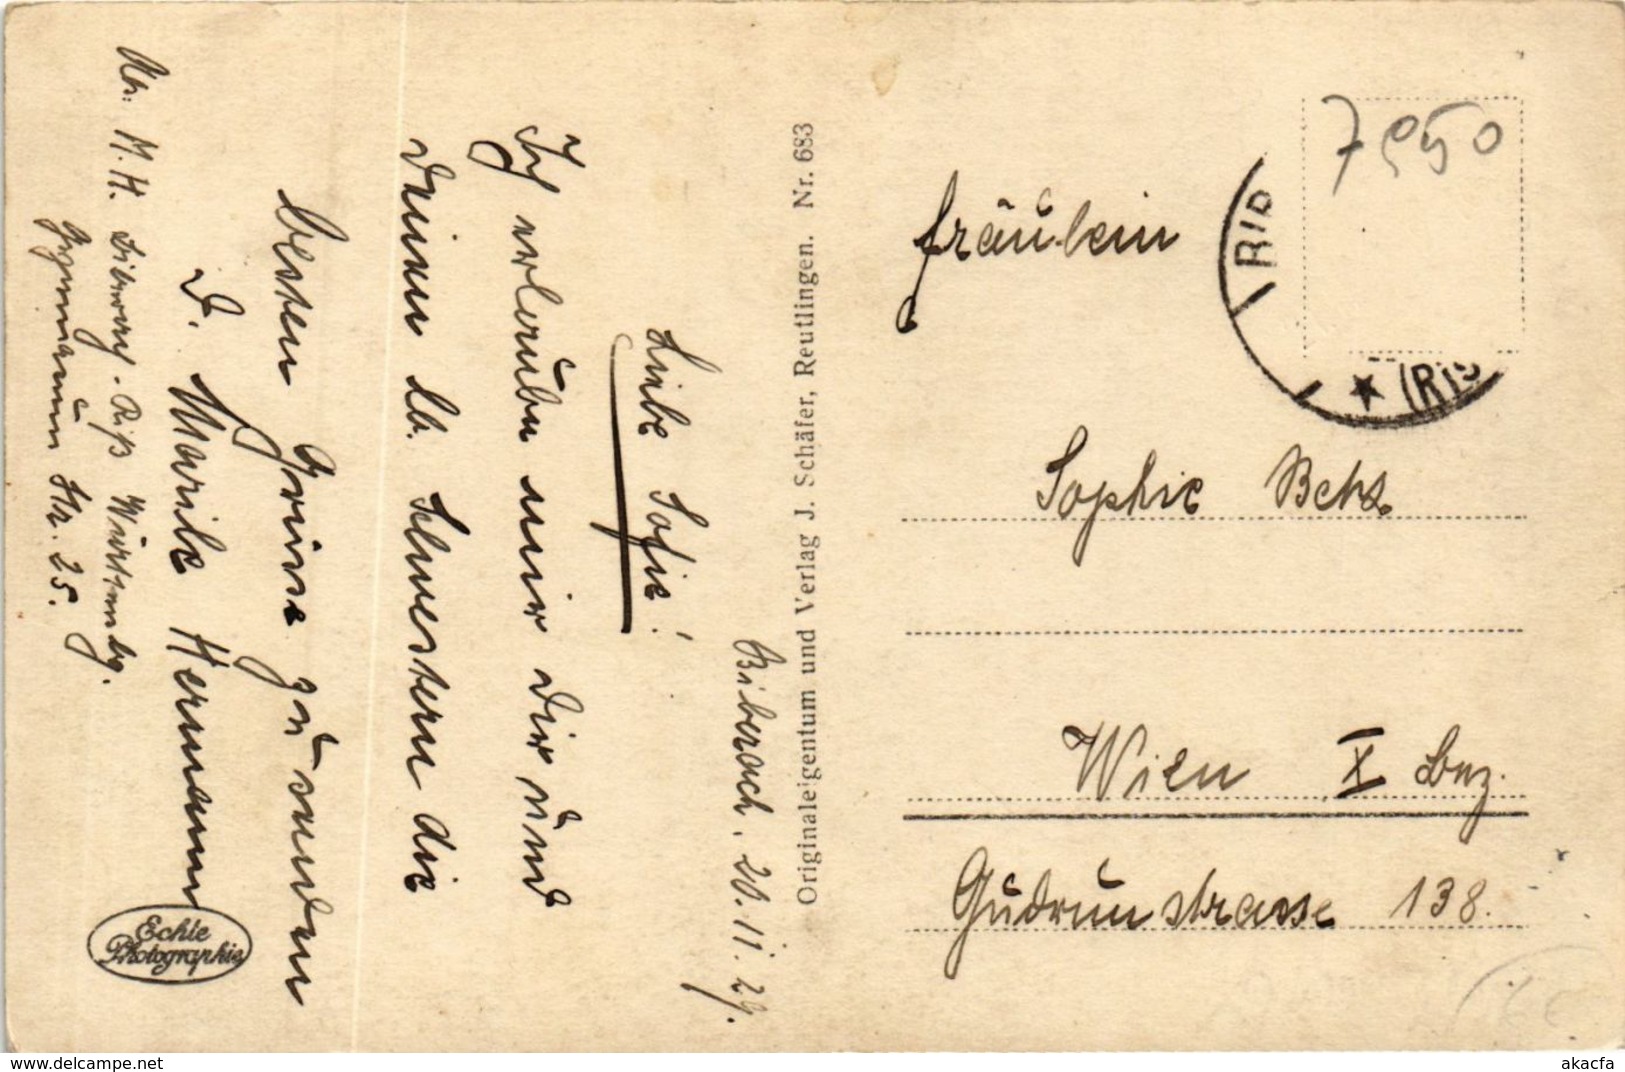 Biberach, 20.11.29.
Liebe Sofie!
Ich erlaube mir dir und
deinen lb. Schwestern die
besten Grüsse zu senden
d. Marile Hermann
Abs: M. H. Biberach - Riß Württembg.
Gymnasium Str. 25.
Echte
Photographie
Originaleigentum und Verlag J. Schäfer, Reutlingen. Nr. 683
7950
(RIS
* (RIS
Fräulein
Sophie Betz
Wien X Bez.
Gudrunstrasse 138.
https://www.delcampe.net
akacfa